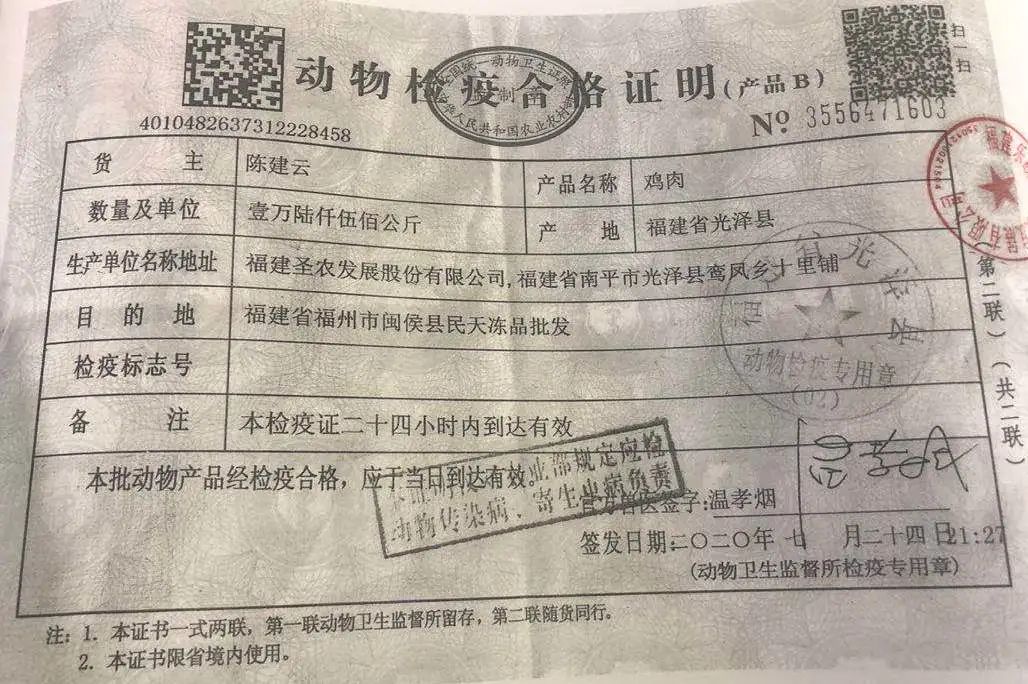 动物检疫合格证明(产品B)
扫一扫
4010482637312228458
№ 3556471603
货主 陈建云 产品名称 鸡肉
数量及单位 壹万陆仟伍佰公斤 产地 福建省光泽县
生产单位名称地址 福建圣农发展股份有限公司,福建省南平市光泽县鸾凤乡十里铺
目的地 福建省福州市闽侯县民天冻品批发
检疫标志号
备注 本检疫证二十四小时内到达有效
本批动物产品经检疫合格，应于当日到达有效。
官方兽医签字:温孝烟
签发日期:二〇二〇年 七 月二十四日21:27
(动物卫生监督所检疫专用章)
注：1. 本证书一式两联，第一联动物卫生监督所留存，第二联随货同行。
2. 本证书限省境内使用。
(第二联)(共二联)
动物检疫专用章
(02)
业部规定应检
动物传染病、寄生虫病负责